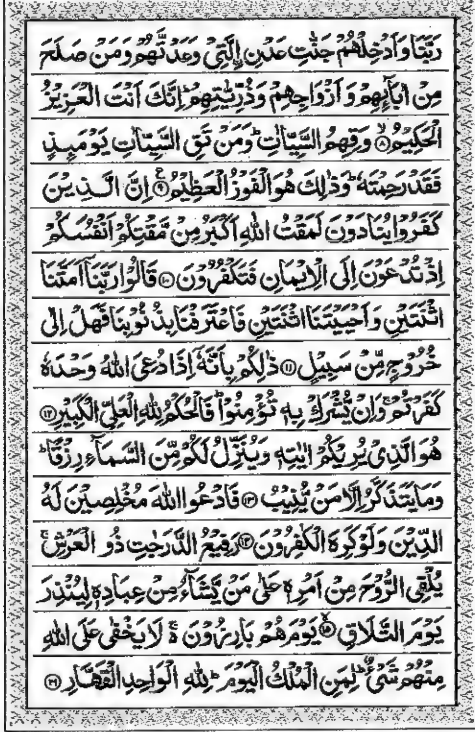 رَبَّنَا وَاَدْخِلْهُمْ جَنّٰتِ عَدْنِ اِۨلَّتِيْ وَعَدْتَّهُمْ وَمَنْ صَلَحَ
مِنْ اٰبَآئِهِمْ وَاَزْوَاجِهِمْ وَذُرِّيّٰتِهِمْ ؕ اِنَّكَ اَنْتَ الْعَزِيْزُ
الْحَكِيْمُ ۙ﴿۸﴾ وَقِهِمُ السَّيِّاٰتِ ؕ وَمَنْ تَقِ السَّيِّاٰتِ يَوْمَئِذٍ
فَقَدْ رَحِمْتَهٗ ؕ وَذٰلِكَ هُوَ الْفَوْزُ الْعَظِيْمُ ﴿۹﴾ اِنَّ الَّذِيْنَ
كَفَرُوْا يُنَادَوْنَ لَمَقْتُ اللّٰهِ اَكْبَرُ مِنْ مَّقْتِكُمْ اَنْفُسَكُمْ
اِذْ تُدْعَوْنَ اِلَى الْاِيْمَانِ فَتَكْفُرُوْنَ ﴿۱۰﴾ قَالُوْا رَبَّنَاۤ اَمَتَّنَا
اثْنَتَيْنِ وَاَحْيَيْتَنَا اثْنَتَيْنِ فَاعْتَرَفْنَا بِذُنُوْبِنَا فَهَلْ اِلٰى
خُرُوْجٍ مِّنْ سَبِيْلٍ ﴿۱۱﴾ ذٰلِكُمْ بِاَنَّهٗۤ اِذَا دُعِيَ اللّٰهُ وَحْدَهٗ
كَفَرْتُمْ ۚ وَاِنْ يُّشْرَكْ بِهٖ تُؤْمِنُوْا ؕ فَالْحُكْمُ لِلّٰهِ الْعَلِيِّ الْكَبِيْرِ ﴿۱۲﴾
هُوَ الَّذِيْ يُرِيْكُمْ اٰيٰتِهٖ وَيُنَزِّلُ لَكُمْ مِّنَ السَّمَآءِ رِزْقًا ؕ
وَمَا يَتَذَكَّرُ اِلَّا مَنْ يُّنِيْبُ ﴿۱۳﴾ فَادْعُوا اللّٰهَ مُخْلِصِيْنَ لَهُ
الدِّيْنَ وَلَوْ كَرِهَ الْكٰفِرُوْنَ ﴿۱۴﴾ رَفِيْعُ الدَّرَجٰتِ ذُو الْعَرْشِ ۚ
يُلْقِى الرُّوْحَ مِنْ اَمْرِهٖ عَلٰى مَنْ يَّشَآءُ مِنْ عِبَادِهٖ لِيُنْذِرَ
يَوْمَ التَّلَاقِ ۙ﴿۱۵﴾ يَوْمَ هُمْ بَارِزُوْنَ ۚ لَا يَخْفٰى عَلَى اللّٰهِ
مِنْهُمْ شَيْءٌ ؕ لِمَنِ الْمُلْكُ الْيَوْمَ ؕ لِلّٰهِ الْوَاحِدِ الْقَهَّارِ ﴿۱۶﴾